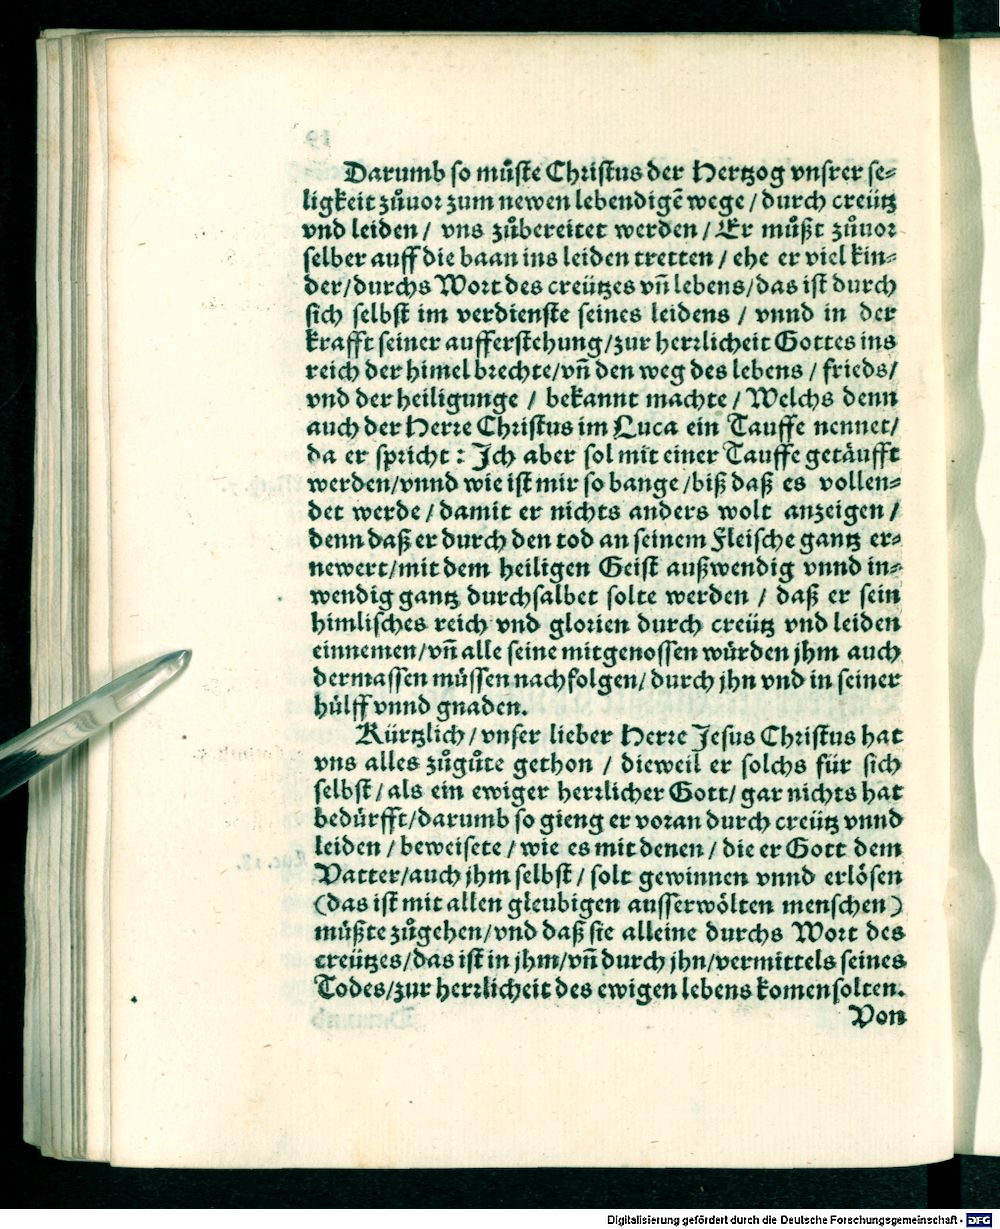 Darumb so můſte Chriſtus der Hertzog vnſrer ſe⸗
ligkeit zůuor zum newen lebendigē wege / durch creütz
vnd leiden / vns zůbereitet werden / Er můßt zůuor
ſelber auff die baan ins leiden tretten / ehe er viel kin⸗
der/durchs Wort des creützes vñ lebens/das iſt durch
ſich ſelbſt im verdienſte ſeines leidens / vnnd in der
krafft ſeiner aufferſtehung/zur herrlicheit Gottes ins
reich der himel brechte/vñ den weg des lebens / frieds/
vnd der heiligunge / bekannt machte / Welchs denn
auch der Herre Chriſtus im Luca ein Tauffe nennet/
da er ſpricht: Ich aber ſol mit einer Tauffe getäufft
werden/vnnd wie iſt mir ſo bange /biß daß es vollen⸗
det werde / damit er nichts anders wolt anzeigen /
denn daß er durch den tod an ſeinem Fleiſche gantz er⸗
newert/mit dem heiligen Geiſt außwendig vnnd in⸗
wendig gantz durchſalbet ſolte werden / daß er ſein
himliſches reich vnd glorien durch creütz vnd leiden
einnemen/vñ alle ſeine mitgenoſſen würden jhm auch
dermaſſen müſſen nachfolgen/ durch jhn vnd in ſeiner
hülff vnnd gnaden.
Kürtzlich/ vnſer lieber Herre Jeſus Chriſtus hat
vns alles zůgůte gethon / dieweil er ſolchs für ſich
ſelbſt/ als ein ewiger herrlicher Gott/ gar nichts hat
bedürfft/darumb ſo gieng er voran durch creütz vnnd
leiden / beweiſete / wie es mit denen / die er Gott dem
Vatter/auch jhm ſelbſt / ſolt gewinnen vnnd erlöſen
(das iſt mit allen gleubigen auſſerwölten menſchen)
müßte zůgehen/vnd daß ſie alleine durchs Wort des
creützes/das iſt in jhm/vñ durch jhn/vermittels ſeines
Todes/zur herrlicheit des ewigen lebens komen ſolten.
Von
Digitalisierung gefördert durch die Deutsche Forschungsgemeinschaft - DFG